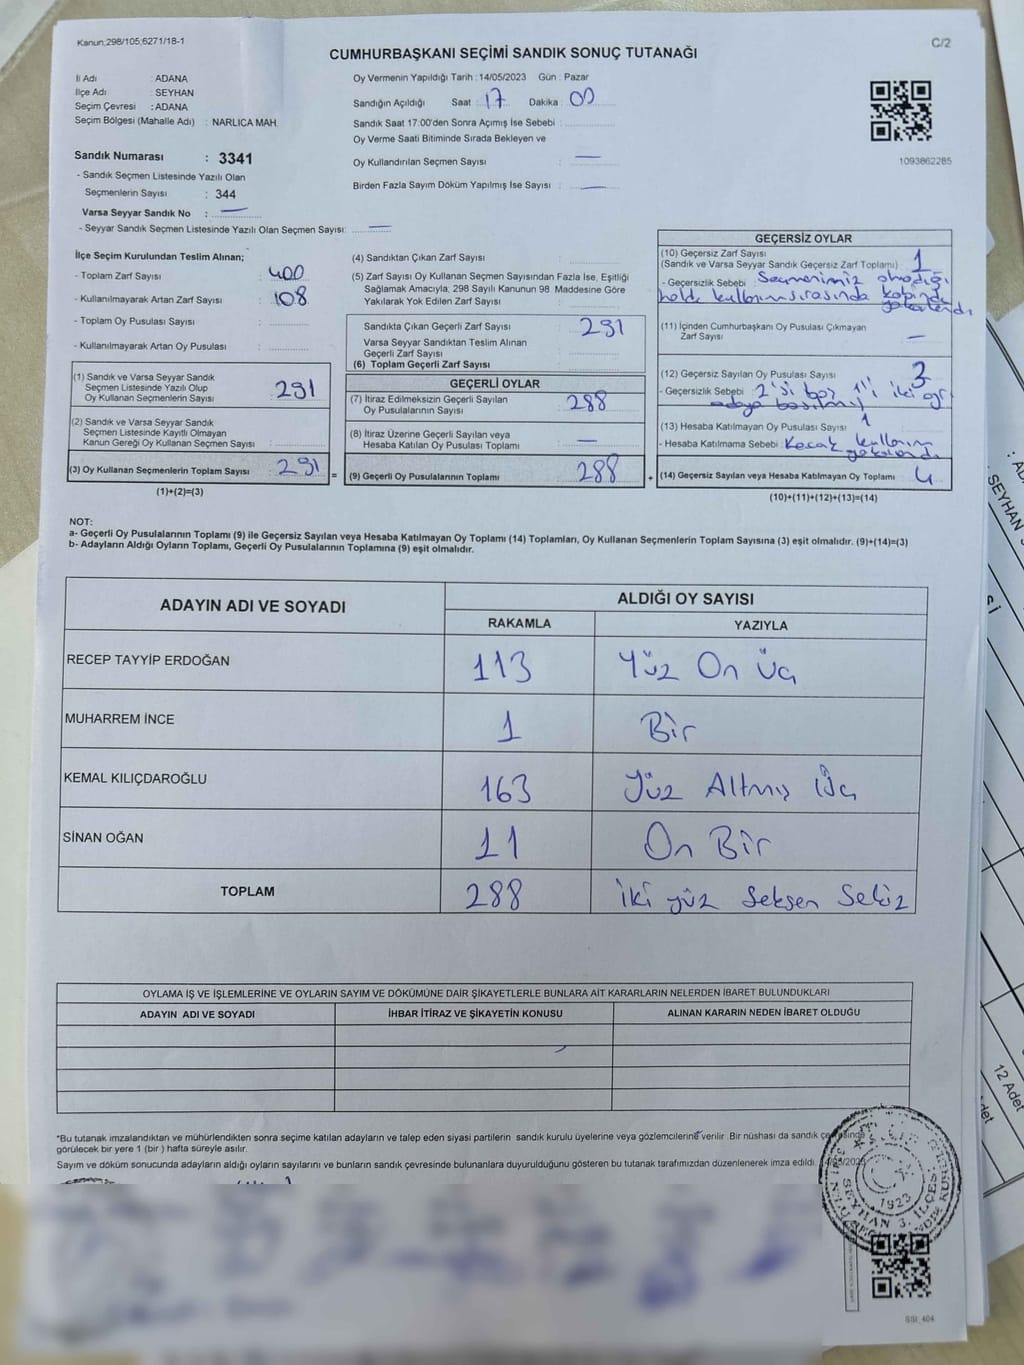 Kanun;298/105;6271/18-1
C/2
CUMHURBAŞKANI SEÇİMİ SANDIK SONUÇ TUTANAĞI
İl Adı : ADANA
İlçe Adı : SEYHAN
Seçim Çevresi : ADANA
Seçim Bölgesi (Mahalle Adı) : NARLICA MAH.
Sandık Numarası : 3341
- Sandık Seçmen Listesinde Yazılı Olan
Seçmenlerin Sayısı : 344
Varsa Seyyar Sandık No : —
- Seyyar Sandık Seçmen Listesinde Yazılı Olan Seçmen Sayısı: —
Oy Vermenin Yapıldığı Tarih : 14/05/2023 Gün : Pazar
Sandığın Açıldığı Saat : 17 Dakika : 00
Sandık Saat 17:00'den Sonra Açımış İse Sebebi :
Oy Verme Saati Bitiminde Sırada Bekleyen ve
Oy Kullandırılan Seçmen Sayısı : —
Birden Fazla Sayım Döküm Yapılmış İse Sayısı : —
1093862285
İlçe Seçim Kurulundan Teslim Alınan;
- Toplam Zarf Sayısı : 400
- Kullanılmayarak Artan Zarf Sayısı : 108
- Toplam Oy Pusulası Sayısı :
- Kullanılmayarak Artan Oy Pusulası :
(1) Sandık ve Varsa Seyyar Sandık
Seçmen Listesinde Yazılı Olup
Oy Kullanan Seçmenlerin Sayısı : 291
(2) Sandık ve Varsa Seyyar Sandık
Seçmen Listesinde Kayıtlı Olmayan
Kanun Gereği Oy Kullanan Seçmen Sayısı :
(3) Oy Kullanan Seçmenlerin Toplam Sayısı : 291 =
(1)+(2)=(3)
(4) Sandıktan Çıkan Zarf Sayısı :
(5) Zarf Sayısı Oy Kullanan Seçmen Sayısından Fazla İse, Eşitliği
Sağlamak Amacıyla, 298 Sayılı Kanunun 98 Maddesine Göre
Yakılarak Yok Edilen Zarf Sayısı :
Sandıkta Çıkan Geçerli Zarf Sayısı : 291
Varsa Seyyar Sandıktan Teslim Alınan
Geçerli Zarf Sayısı :
(6) Toplam Geçerli Zarf Sayısı :
GEÇERLİ OYLAR
(7) İtiraz Edilmeksizin Geçerli Sayılan
Oy Pusulalarının Sayısı : 288
(8) İtiraz Üzerine Geçerli Sayılan veya
Hesaba Katılan Oy Pusulası Toplamı : —
(9) Geçerli Oy Pusulalarının Toplamı : 288 +
GEÇERSİZ OYLAR
(10) Geçersiz Zarf Sayısı
(Sandık ve Varsa Seyyar Sandık Geçersiz Zarf Toplamı) : 1
- Geçersizlik Sebebi : Seçmenimiz olmadığı
halde kullanım sırasında kabinde
yakalandı
(11) İçinden Cumhurbaşkanı Oy Pusulası Çıkmayan
Zarf Sayısı : —
(12) Geçersiz Sayılan Oy Pusulası Sayısı : 3
- Geçersizlik Sebebi : 2'si boş 1'i iki
adaya basılmış
(13) Hesaba Katılmayan Oy Pusulası Sayısı : 1
- Hesaba Katılmama Sebebi : Kaçak kullanım
yakalandı
(14) Geçersiz Sayılan veya Hesaba Katılmayan Oy Toplamı : 4
(10)+(11)+(12)+(13)=(14)
NOT:
a- Geçerli Oy Pusulalarının Toplamı (9) ile Geçersiz Sayılan veya Hesaba Katılmayan Oy Toplamı (14) Toplamları, Oy Kullanan Seçmenlerin Toplam Sayısına (3) eşit olmalıdır. (9)+(14)=(3)
b- Adayların Aldığı Oyların Toplamı, Geçerli Oy Pusulalarının Toplamına (9) eşit olmalıdır.
ADAYIN ADI VE SOYADI ALDIĞI OY SAYISI
RAKAMLA YAZIYLA
RECEP TAYYİP ERDOĞAN 113 Yüz On Üç
MUHARREM İNCE 1 Bir
KEMAL KILIÇDAROĞLU 163 Yüz Altmış Üç
SİNAN OĞAN 11 On Bir
TOPLAM 288 İki yüz Seksen Sekiz
OYLAMA İŞ VE İŞLEMLERİNE VE OYLARIN SAYIM VE DÖKÜMÜNE DAİR ŞİKAYETLERLE BUNLARA AİT KARARLARIN NELERDEN İBARET BULUNDUKLARI
ADAYIN ADI VE SOYADI İHBAR İTİRAZ VE ŞİKAYETİN KONUSU ALINAN KARARIN NEDEN İBARET OLDUĞU
*Bu tutanak imzalandıktan ve mühürlendikten sonra seçime katılan adayların ve talep eden siyasi partilerin sandık kurulu üyelerine veya gözlemcilerine verilir. Bir nüshası da sandık çevresinde
görülecek bir yere 1 (bir ) hafta süreyle asılır.
Sayım ve döküm sonucunda adayların aldığı oyların sayılarını ve bunların sandık çevresinde bulunanlara duyurulduğunu gösteren bu tutanak tarafımızdan düzenlenerek imza edildi.
1923
SEYHAN 3. İLÇE
SSI_404
SEYHAN
12 Adet